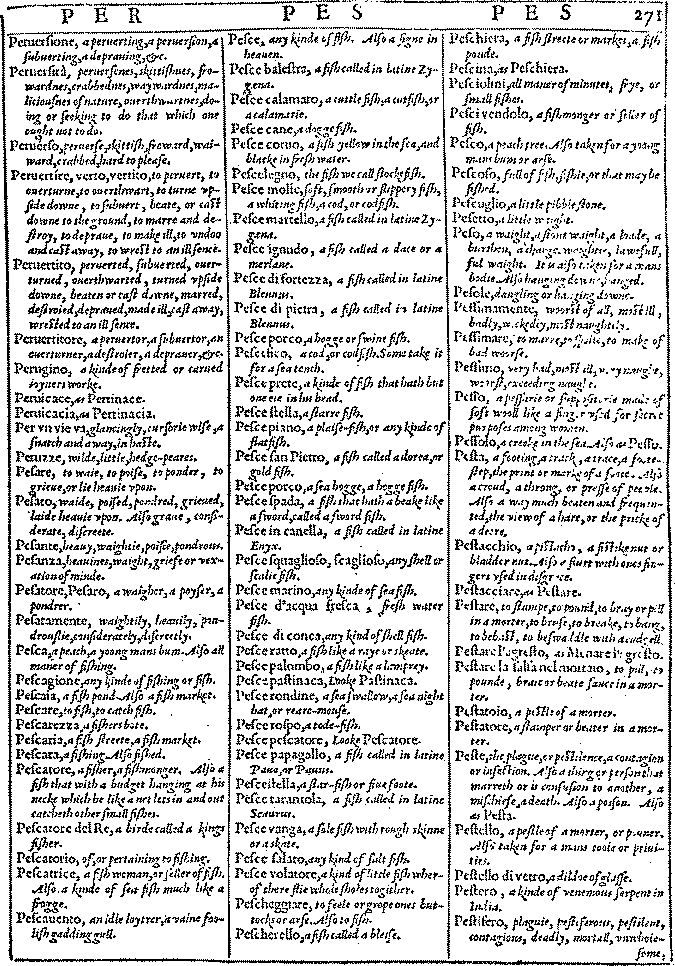 PER PES PES 271
Peruersione, a peruerting, a peruersion, a
subuerting, a deprauing, &c.
Peruersità, peruersenes, skittishnes, fro-
wardnes, crabbednes, waywardnes, ma-
litiousnes of nature, ouerthwartnes, do-
ing or seeking to do that which one
ought not to do.
Peruerso, peruerse, skittish, froward, wai-
ward, crabbed, hard to please.
Peruertire, verto, vertito, to peruert, to
ouerturne, to ouerthwart, to turne vp-
side downe, to subuert, beate, or cast
downe to the ground, to marre and de-
stroy, to depraue, to make ill, to vndoo
and cast away, to wrest to an ill sence.
Peruertito, peruerted, subuerted, ouer-
turned, ouerthwarted, turned vpside
downe, beaten or cast downe, marred,
destroied, depraued, made ill, cast away,
wrested to an ill sence.
Peruertitore, a peruertor, a subuertor, an
ouerturner, a destroier, a deprauer, &c.
Perugino, a kinde of fretted or carued
ioyners worke.
Peruicace, as Pertinace.
Peruicacia, as Pertinacia.
Per vn vie va, glancingly, cursorie wise, a
snatch and away, in haste.
Peruzze, wilde, little, hedge-peares.
Pesare, to waie, to poise, to ponder, to
grieue, or lie heauie vpon.
Pesato, waide, poised, pondred, grieued,
laide heauie vpon. Also graue, consi-
derate, discreete.
Pesante, heauy, waightie, poisee, pondrous.
Pesanza, heauines, waight, griefe or vex-
ation of minde.
Pesatore, Pesaro, a waigher, a poyser, a
pondrer.
Pesatamente, waightily, heauily, pon-
drouslie, considerately, discreetly.
Pesca, a peach, a young mans bum. Also all
maner of fishing.
Pescagione, any kinde of fishing or fish.
Pescaia, a fish pond. Also a fish market.
Pescare, to fish, to catch fish.
Pescarezza, a fishers bote.
Pescaria, a fish streete, a fish market.
Pescata, a fishing. Also fished.
Pescatore, a fisher, a fishmonger. Also a
fish that with a budget hanging at his
necke which be like a net lets in and out
catcheth other small fishes.
Pescatore del Re, a birde called a kings
fisher.
Pescatorio, of, or pertaining to fishing.
Pescatrice, a fish woman, or seller of fish.
Also a kinde of sea fish much like a
frogge.
Pescauento, an idle loytrer, a vaine foo-
lish gadding gull.
Pesce, any kinde of fish. Also a signe in
heauen.
Pesce balestra, a fish called in latine Zy-
gena.
Pesce calamato, a cuttle fish, a cutfish, or
a calamarie.
Pesce cane, a dogge fish.
Pesce coruo, a fish yellow in the sea, and
blacke in fresh water.
Pesce legno, the fish we call stockfish.
Pesce molle, soft, smooth or slippery fish,
a whiting fish, a cod, or codfish.
Pesce martello, a fish called in latine Zy-
gena.
Pesce ignudo, a fish called a dace or a
merlane.
Pesce di fortezza, a fish called in latine
Blennus.
Pesce di pietra, a fish called in latine
Blennus.
Pesce porco, a hogge or swine fish.
Pescetico, a cod, or codfish. Some take it
for a sea tench.
Pesce prete, a kinde of fish that hath but
one eie in his head.
Pesce stella, a starre fish.
Pesce piano, a plaise-fish, or any kinde of
flatfish.
Pesce san Pietro, a fish called a dorea, or
gold fish.
Pesce porco, a sea hogge, a hogge fish.
Pesce spada, a fish that hath a beake like
a sword, called a sword fish.
Pesce in canella, a fish called in latine
Enyx.
Pesce squaglioso, scaglioso, any shell or
scalie fish.
Pesce marino, any kinde of sea fish.
Pesce d'acqua fresca, fresh water
fish.
Pesce di conca, any kind of shell fish.
Pesce ratto, a fish like a raye or skeate.
Pesce palombo, a fish like a lamprey.
Pesce pastinaca, Looke Pastinaca.
Pesce rondine, a sea swallow, a sea night
bat, or reare-mouse.
Pesce rospo, a tode-fish.
Pesce pescatore, Looke Pescatore.
Pesce papagallo, a fish called in latine
Pauo, or Pauus.
Pesce stella, a star-fish or fiue foote.
Pesce tarantola, a fish called in latine
Scaurus.
Pesce vanga, a sole fish with rough skinne
or a skate.
Pesce salato, any kind of salt fish.
Pesce volatore, a kind of little fish wher-
of there flie whole sholes togither.
Pescheggiare, to feele or grope ones but-
tocks or arse. Also to fish.
Pescherello, a fish called a bleise.
Peschiera, a fish streete or market, a fish
poude.
Pescina, as Peschiera.
Pesciolini, all maner of minutes, frye, or
small fishes.
Pesci vendolo, a fishmonger or seller of
fish.
Pesco, a peach tree. Also taken for a young
mans bum or arse.
Pescoso, full of fish, fishie, or that may be
fished.
Pescuglio, a little pibble stone.
Pesetto, a little weight.
Peso, a waight, a stone waight, a lode, a
burthen, a charge, weightie, lawfull,
full waight. It is also taken for a mans
bodie. Also hanging downe, hanged.
Pesole, dangling or hanging downe.
Pessimamente, worst of all, most ill,
badly, wickedly, most naughtily.
Pessimare, to marre, to spoile, to make of
bad worse.
Pessimo, very bad, most ill, very naught,
worst, exceeding naught.
Pesso, a pessarie or suppositorie made of
soft wooll like a finger vsed for secret
purposes among women.
Pessolo, a creeke in the sea. Also as Pesso.
Pesta, a footing, a track, a trace, a foote-
step, the print or marke of a foote. Also
a croud, a throng, or presse of people.
Also a way much beaten and frequen-
ted, the view of a hare, or the pricke of
a deere.
Pestacchio, a pistacho, a fistike nut or
bladder nut. Also a flurt with ones fin-
gers vsed in disgrace.
Pestacciare, as Pestare.
Pestare, to stampe, to pound, to bray or pill
in a morter, to brose, to breake, to bang,
to bebast, to beswadle with a cudgell.
Pestare l'agresto, as Menare l'agresto.
Pestare la salsa nel mortaio, to pill, to
pounde, bray or beate sauce in a mor-
ter.
Pestatoio, a pestle of a morter.
Pestatore, a stamper or beater in a mor-
ter.
Peste, the plague, or pestilence, a contagion
or infection. Also a thing or person that
marreth or is confusion to another, a
mischiefe, a death. Also a poison. Also
as Pesta.
Pestello, a pestle of a morter, or pouner.
Also taken for a mans toole or priui-
ties.
Pestello di vetro, a dildoe of glasse.
Pestero, a kinde of venemous serpent in
India.
Pestifero, plaguie, pestiferous, pestilent,
contagious, deadly, mortall, vnwhole-
some,